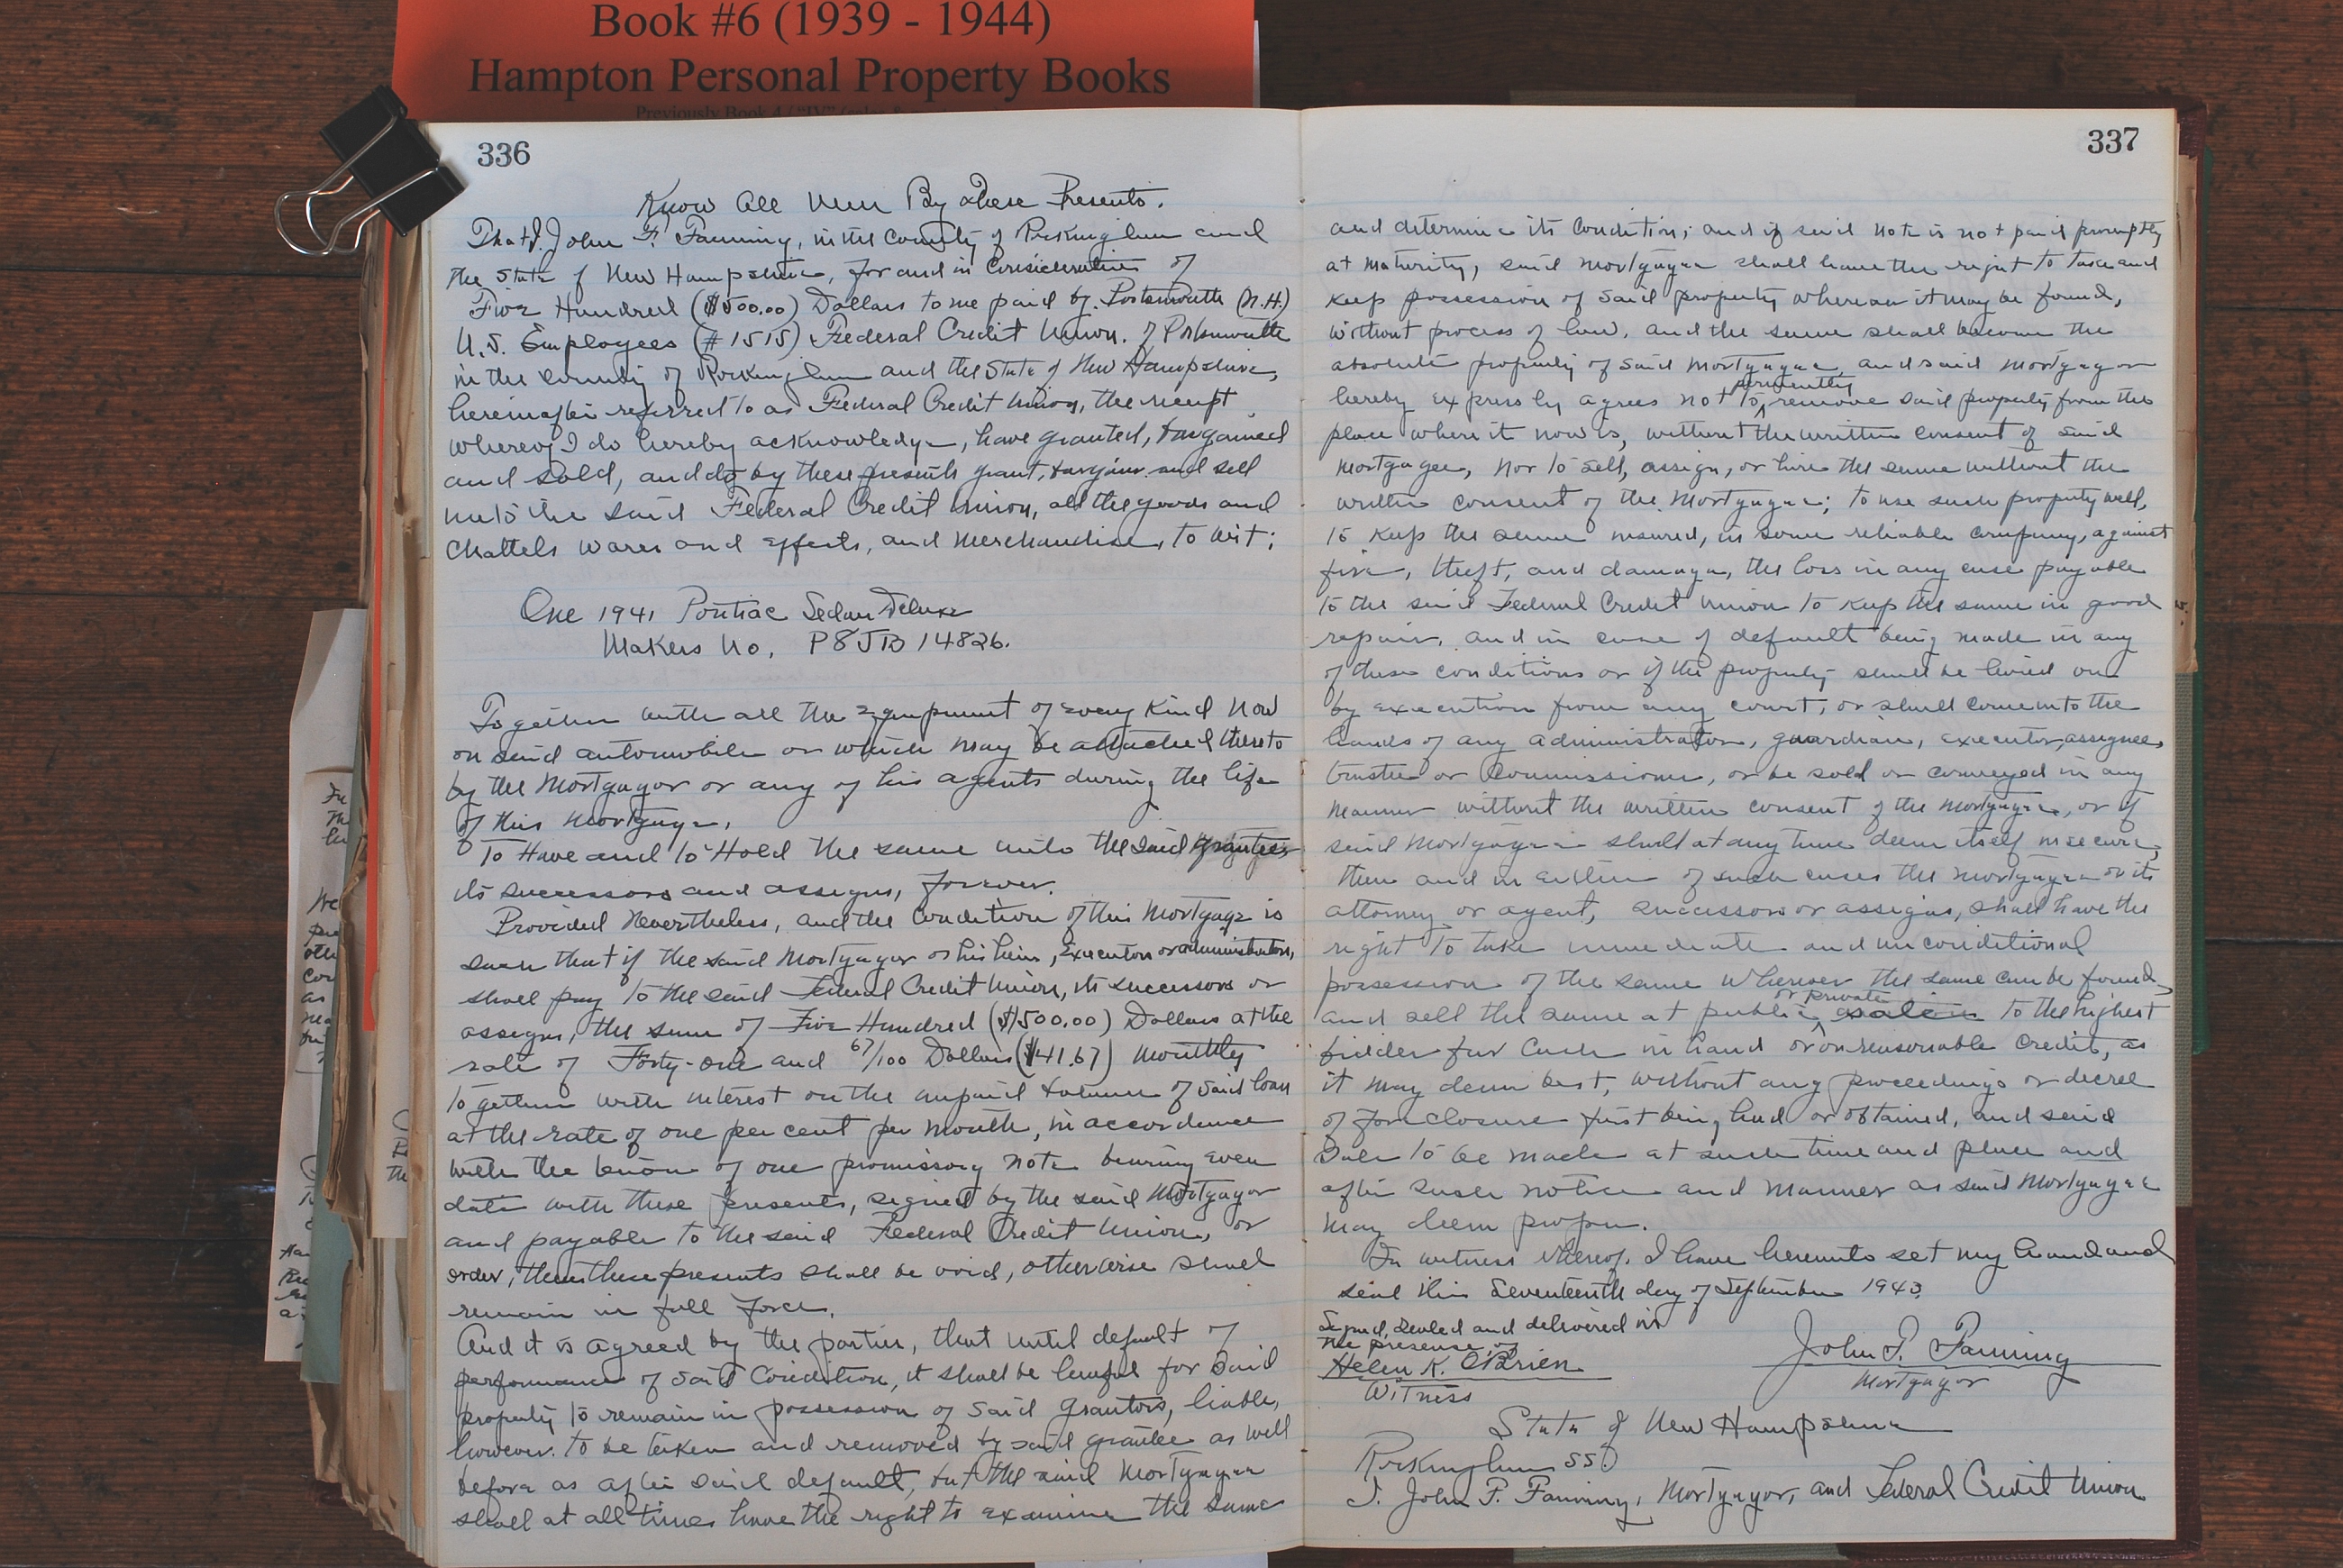 Book #6 (1939 - 1944)
Hampton Personal Property Books
336
Know All Men By These Presents.
That I, John F. Fanning, in the County of Rockingham and
the State of New Hampshire, for and in Consideration of
Five Hundred ($500.00) Dollars to me paid by Portsmouth (N.H.)
U.S. Employees (#1515) Federal Credit Union. of Portsmouth
in the County of Rockingham and the State of New Hampshire,
hereinafter referred to as Federal Credit Union, the receipt
whereof I do hereby acknowledge, have granted, bargained
and sold, and do by these presents grant, bargain and sell
unto the said Federal Credit Union, all the goods and
Chattels wares and effects, and Merchandise, to wit;
One 1941 Pontiac Sedan Deluxe
Makers No. P8JB 14826.
Together with all the equipment of every kind now
on said automobile or which may be attached thereto
by the Mortgagor or any of his agents during the life
of this mortgage.
To Have and to Hold the same unto the said grantee
its successors and assigns, forever.
Provided Nevertheless, and the Condition of this Mortgage is
such that if the said Mortgagor or his heirs, Executors or administrators,
shall pay to the said Federal Credit Union, its successors or
assigns, the sum of Five Hundred ($500.00) Dollars at the
rate of Forty-one and 67/100 Dollars ($41.67) monthly
together with interest on the unpaid balance of said loan
at the rate of one per cent per month, in accordance
with the tenor of one promissory note bearing even
date with these presents, signed by the said Mortgagor
and payable to the said Federal Credit Union, or
order, then these presents shall be void, otherwise shall
remain in full force.
And it is agreed by the parties, that until default of
performance of said Condition, it shall be lawful for said
property to remain in possession of said Grantors, liable,
however. to be taken and removed by said grantee as well
before as after said default, but the said Mortgagee
shall at all times have the right to examine the same
337
and determine its Condition; and if said note is not paid promptly
at maturity, said mortgagee shall have the right to take and
keep possession of said property wherever it may be found,
without process of law. and the same shall become the
absolute property of said Mortgagee, and said mortgagor
permanently
hereby expressly agrees not to remove said property from the
place where it now is, without the written consent of said
mortgagee, nor to sell, assign, or hire the same without the
written consent of the Mortgagee; to use such property well,
to keep the same insured, in some reliable company, against
fire, theft, and damage, the loss in any case payable
to the said Federal Credit Union to keep the same in good
repair. and in case of default being made in any
of these conditions or if the property shall be levied on
by execution from any court, or shall come into the
hands of any administrator, guardian, executor, assignee,
trustee or Commissioner, or be sold or conveyed in any
manner without the written consent of the mortgagee, or if
said Mortgagee shall at any time deem itself insecure,
then and in either of such cases the mortgagee or its
attorney or agent, successors or assigns, shall have the
right to take immediate and unconditional
possession of the same wherever the same can be found,
or private
and sell the same at public sale to the highest
bidder for Cash in hand or on reasonable Credit, as
it may deem best, without any proceedings or decree
of foreclosure first being had or obtained, and said
Sale to be made at such time and place and
after such notice and manner as said Mortgagee
may deem proper.
In witness whereof. I have hereunto set my hand and
seal this Seventeenth day of September 1943.
Signed, Sealed and delivered in
the presense of
Helen K. O'Brien
Witness
John F. Fanning
Mortgagor
State of New Hampshire
Rockingham SS
I. John F. Fanning, Mortgagor, and Federal Credit Union